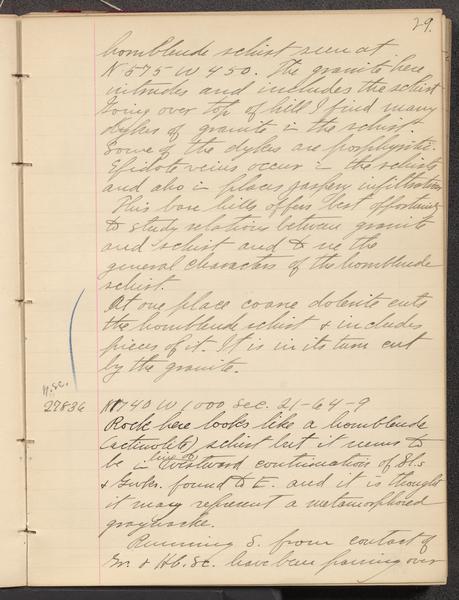 29.
hornblende schist seen at
N 575 W 450. The granite here
intrudes and includes the schist
Going over top of hill I find many
dykes of granite in the schist.
Some of the dykes are porphyritic.
Epidote veins occur in the schists
and also in places jaspery infiltration
This bare hills offers best opportunity
to study relations between granite
and schist and to see the
general characters of the hornblende
schist.
At one place coarse dolerite cuts
the hornblende schist & includes
pieces of it. It is in its turn cut
by the granite.
H.Sc.
27836 N 740 W 1000 Sec. 21-64-9
Rock here looks like a hornblende
(actinolite) schist but it seems to
be in line of Westward continuation of Sl.s
& Gwks. found to E. and it is thought
it may represent a metamorphosed
graywacke.
Running S. from contact of
Gr. & Hb. Sc. have been passing over